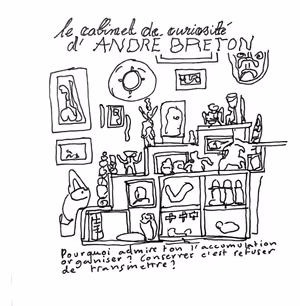 le cabinet de curiosité
d' ANDRE BRETON
Pourquoi admire ton l'accumulation
organiser? Conserver c'est refuser
de transmettre?